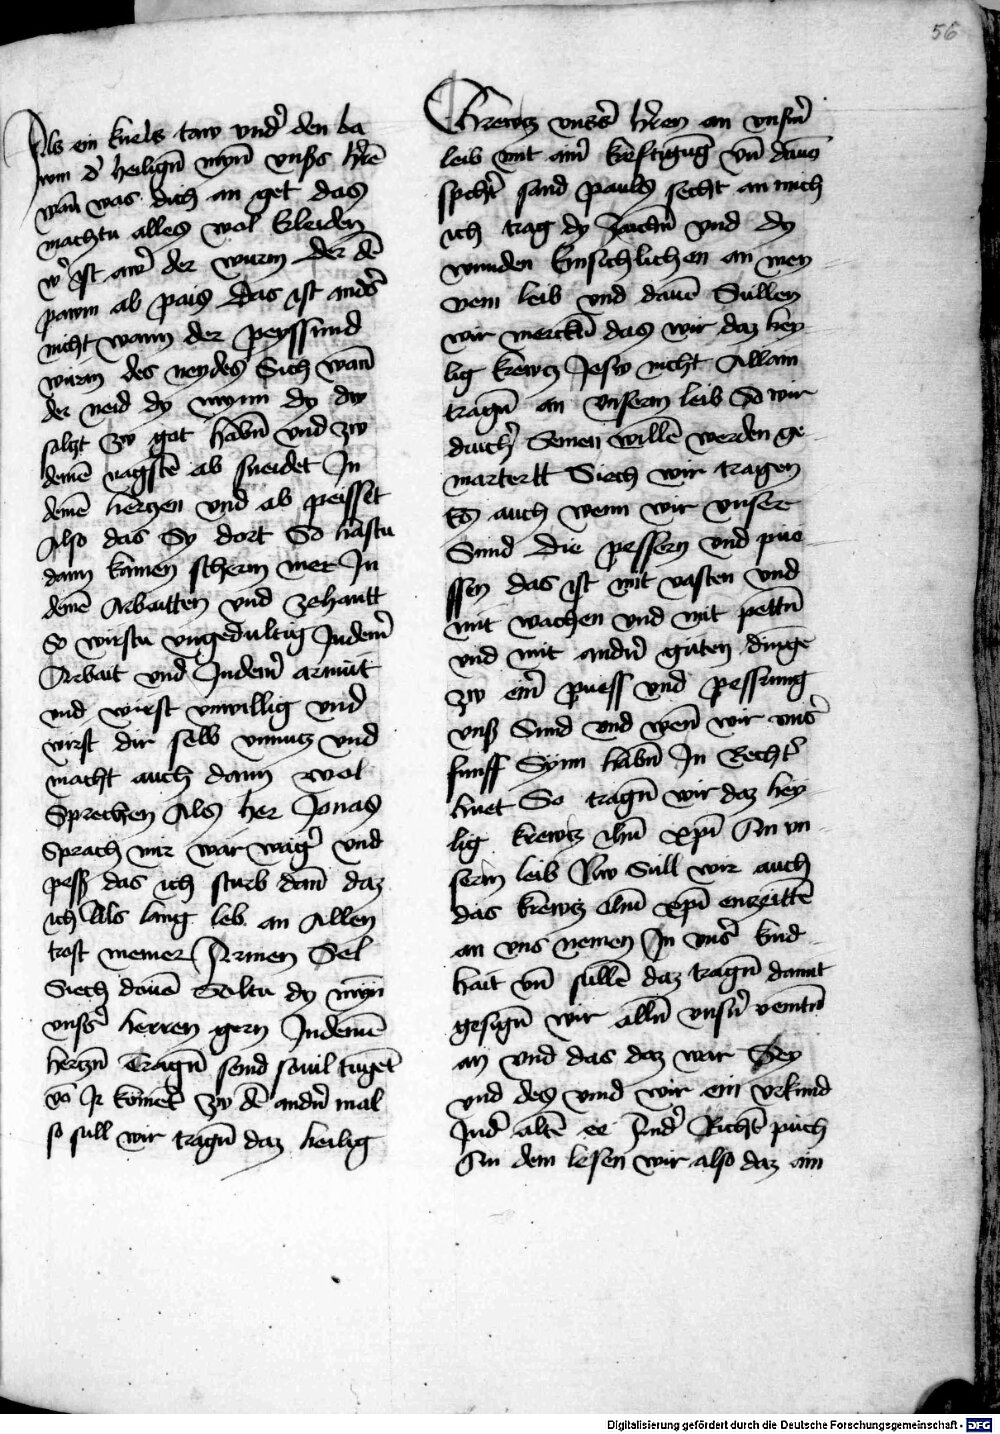 56
Als ein kuels taw vnder den ba
wm d' heiligñ mynn vnßs hrē
wañ was dich an get das
machtu alles wol kleiden
w' ist aw' der wurm der dē
pawm ab pais Das ist anders
nicht wann der peyssund
wurm des neydes Sich wañ
der neid dy mynn dy dw
soltzt zw got habñ vnd zw
deinē nagstē ab sneidet Jn
deinē hertzen vnd ab peisset
Also das Sy dort So hastu
dann kainen scherm mer Jn
deinē Arbaitten vnd zehantt
So wirstu vngedultig Jndein'
Arbait vnd Jndein' armüt
vnd wirst vnwillig vnd
wirst dir selb vnnutz vnd
macht auch dann wol
Sprechen Als her Jonas
Sprach mir war wäg' vnd
pess das ich sturb dañ daz
ich Als lang leb an Allen
trost meiner Armen Sel
Siech dauō Soltu dy mȳn
vnßs' herren gern Jndeinē
hertzñ Tragñ seind souil tugēt
vō Jr komēt zw dē andñ mal
so sull wir tragñ daz heilig
Chrewtz vnss' hren an vnsm̄
leib mit ain' kreftigūg vñ dauō
spcht sand pauls secht an mich
ich trag dy zaichñ vnd dy
wunden kinsichlichen an mey
nem leib vnd dauō Sullen
wir merckñ das wir daz hey
lig krewtz Jesw nicht Allain
tragñ an vnserm leib So wir
durch Seinen willē werden ge
martertt Siech wir tragen
Es auch wenn wir vnser
Sund die pessern vnd pue
ssen das ist mit vasten vnd
mit wachen vnd mit pettñ
vnd mit andñ guten dinge
zw ein' puess vnd pessrung
vnß Sund vnd wen̄ wir vns'
funff Synn habñ Jn Recht'
huet So tragñ wir daz hey
lig krewtz ihū xpi An vn
serm leib Nw Sull wir auch
das krewtz ihū xpi enzeittē
an vns nemen Jn vns' kind
hait vñ sullē daz tragñ damit
gesigñ wir allñ vnsñ veintñ
an vnd das daz war Sey
vnd des vind wir ein vrkund
Jnd' altē ee Jnd' Richt' puch
An dem lesen wir also daz ain
Digitalisierung gefördert durch die Deutsche Forschungsgemeinschaft - DFG